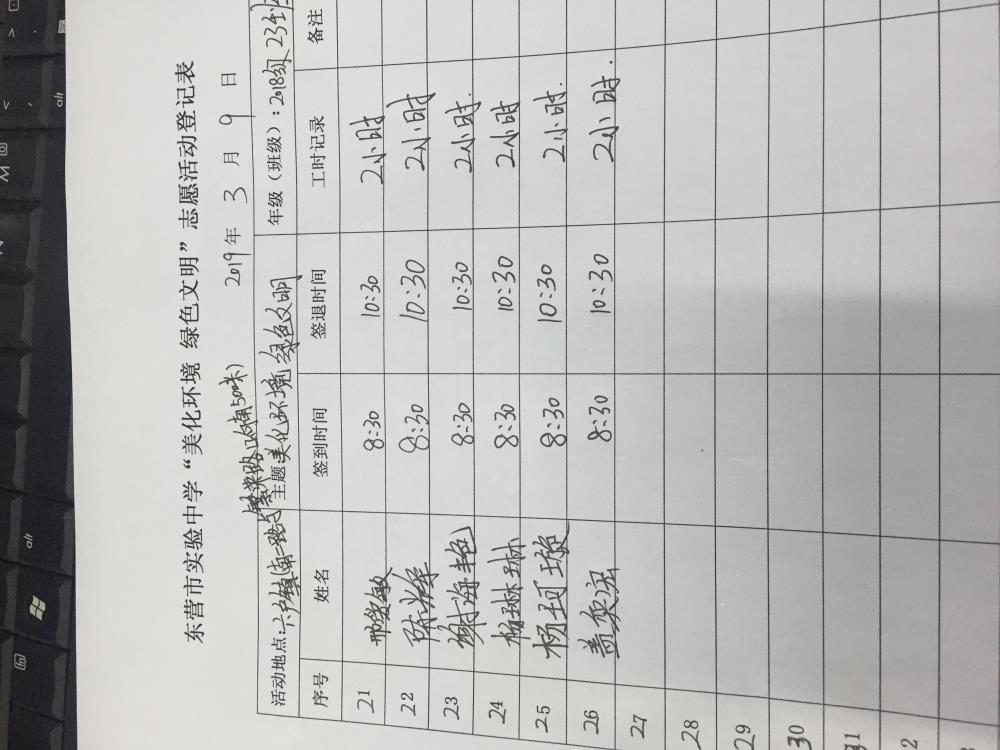 东营市实验中学“美化环境 绿色文明”志愿活动登记表
2019年 3 月 9 日
活动地点:六户镇 主题 美化环境 绿色文明 年级(班级):2018级23班
序号 姓名 签到时间 签退时间 工时记录 备注
21 邢景敏 8:30 10:30 2小时
22 陈光辉 8:30 10:30 2小时
23 谢海艳 8:30 10:30 2小时.
24 杨琳琳 8:30 10:30 2小时
25 杨珂璇 8:30 10:30 2小时.
26 盖奕宏 8:30 10:30 2小时.
27
28
29
30
31